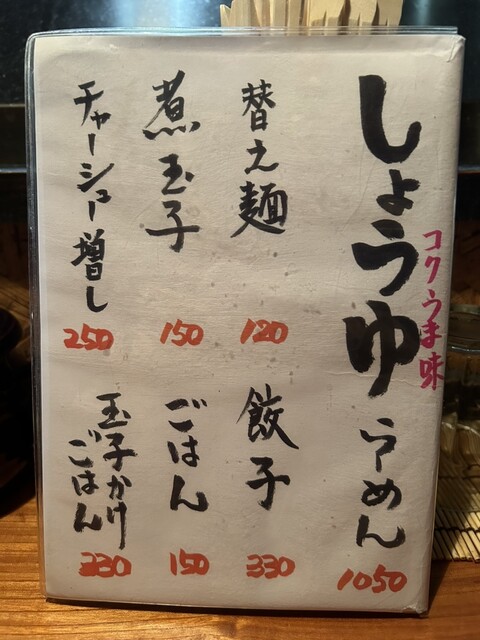 しょうゆらーめん
コクうま味
1050
替え麺
120
餃子
330
煮玉子
150
ごはん
150
チャーシュー増し
250
玉子かけ
ごはん
230